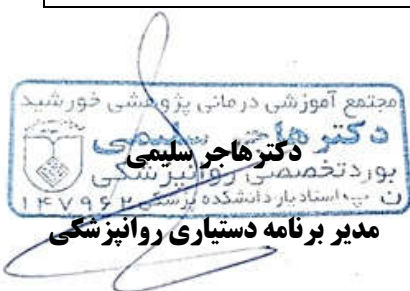 مجتمع آموزشی درمانی پژوهشی خورشید
دکتر هاجر سلیمی
دکتر هاجر سلیمی
بورد تخصصی روانپزشکی
استادیار دانشکده پزشکی ۱۴۷۹۶۲
مدیر برنامه دستیاری روانپزشکی